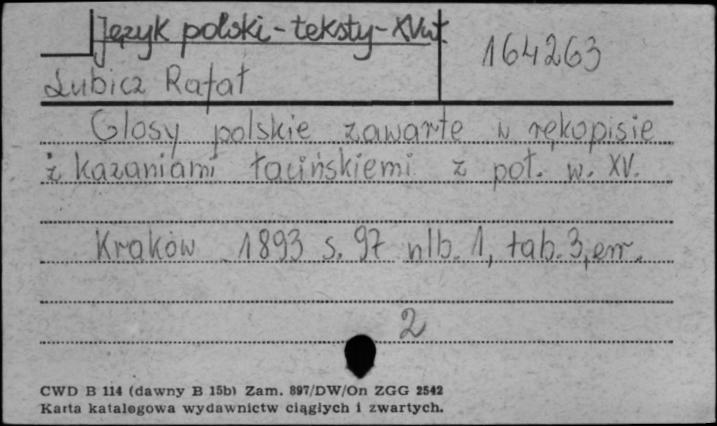 Język polski - teksty - XV w.
164263
Lubicz Rafał
Glosy polskie zawarte w rękopisie
z kazaniami łacińskiemi z poł. w. XV.
Kraków 1893 s. 97 nlb. 1, tab. 3, err.
2
CWD B 114 (dawny B 15b) Zam. 897/DW/On ZGG 2542
Karta katalogowa wydawnictw ciągłych i zwartych.